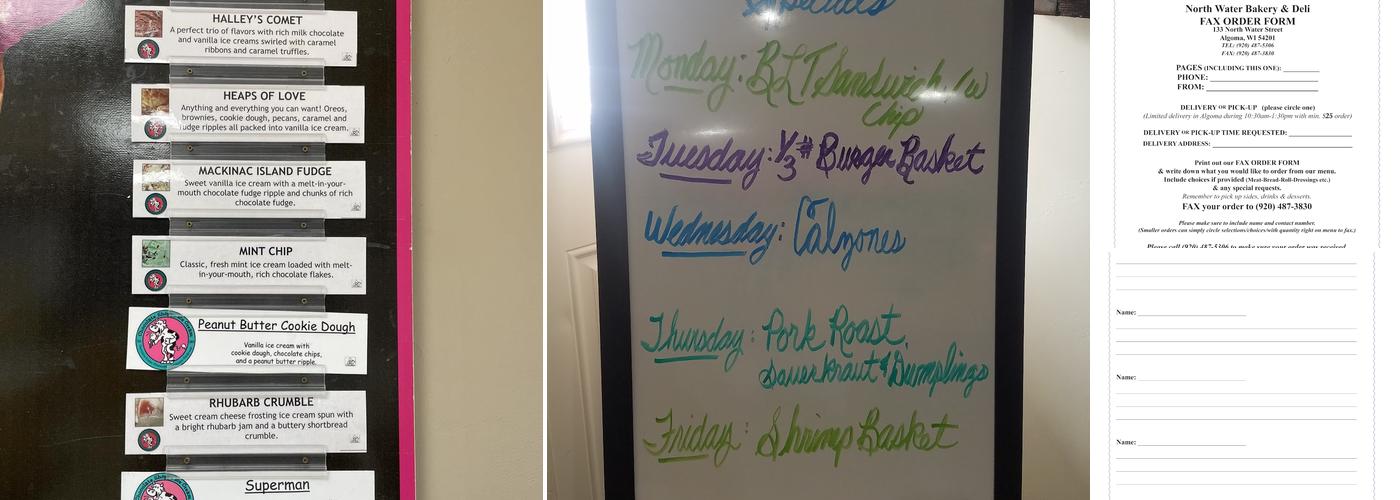 HALLEY'S COMET
A perfect trio of flavors with rich milk chocolate
and vanilla ice creams swirled with caramel
ribbons and caramel truffles.
HEAPS OF LOVE
Anything and everything you can want! Oreos,
brownies, cookie dough, pecans, caramel and
fudge ripples all packed into vanilla ice cream.
MACKINAC ISLAND FUDGE
Sweet vanilla ice cream with a melt-in-your-
mouth chocolate fudge ripple and chunks of rich
chocolate fudge.
MINT CHIP
Classic, fresh mint ice cream loaded with melt-
in-your-mouth, rich chocolate flakes.
Peanut Butter Cookie Dough
Vanilla ice cream with
cookie dough, chocolate chips,
and a peanut butter ripple.
RHUBARB CRUMBLE
Sweet cream cheese frosting ice cream spun with
a bright rhubarb jam and a buttery shortbread
crumble.
Superman
Specials
Monday: BLT Sandwich /w
Chip
Tuesday: 1/3# Burger Basket
Wednesday: Calzones
Thursday: Pork Roast,
Sauerkraut & Dumplings
Friday: Shrimp Basket
North Water Bakery & Deli
FAX ORDER FORM
133 North Water Street
Algoma, WI 54201
TEL: (920) 487-5306
FAX: (920) 487-3830
PAGES (INCLUDING THIS ONE):
PHONE:
FROM:
DELIVERY OR PICK-UP (please circle one)
(Limited delivery in Algoma during 10:30am-1:30pm with min. $25 order)
DELIVERY OR PICK-UP TIME REQUESTED:
DELIVERY ADDRESS:
Print out our FAX ORDER FORM
& write down what you would like to order from our menu.
Include choices if provided (Meat-Bread-Roll-Dressings etc.)
& any special requests.
Remember to pick up sides, drinks & desserts.
FAX your order to (920) 487-3830
Please make sure to include name and contact number.
(Smaller orders can simply circle selections/choices/with quantity right on menu to fax.)
Please call (920) 487-5306 to make sure your order was received
Name:
Name:
Name: